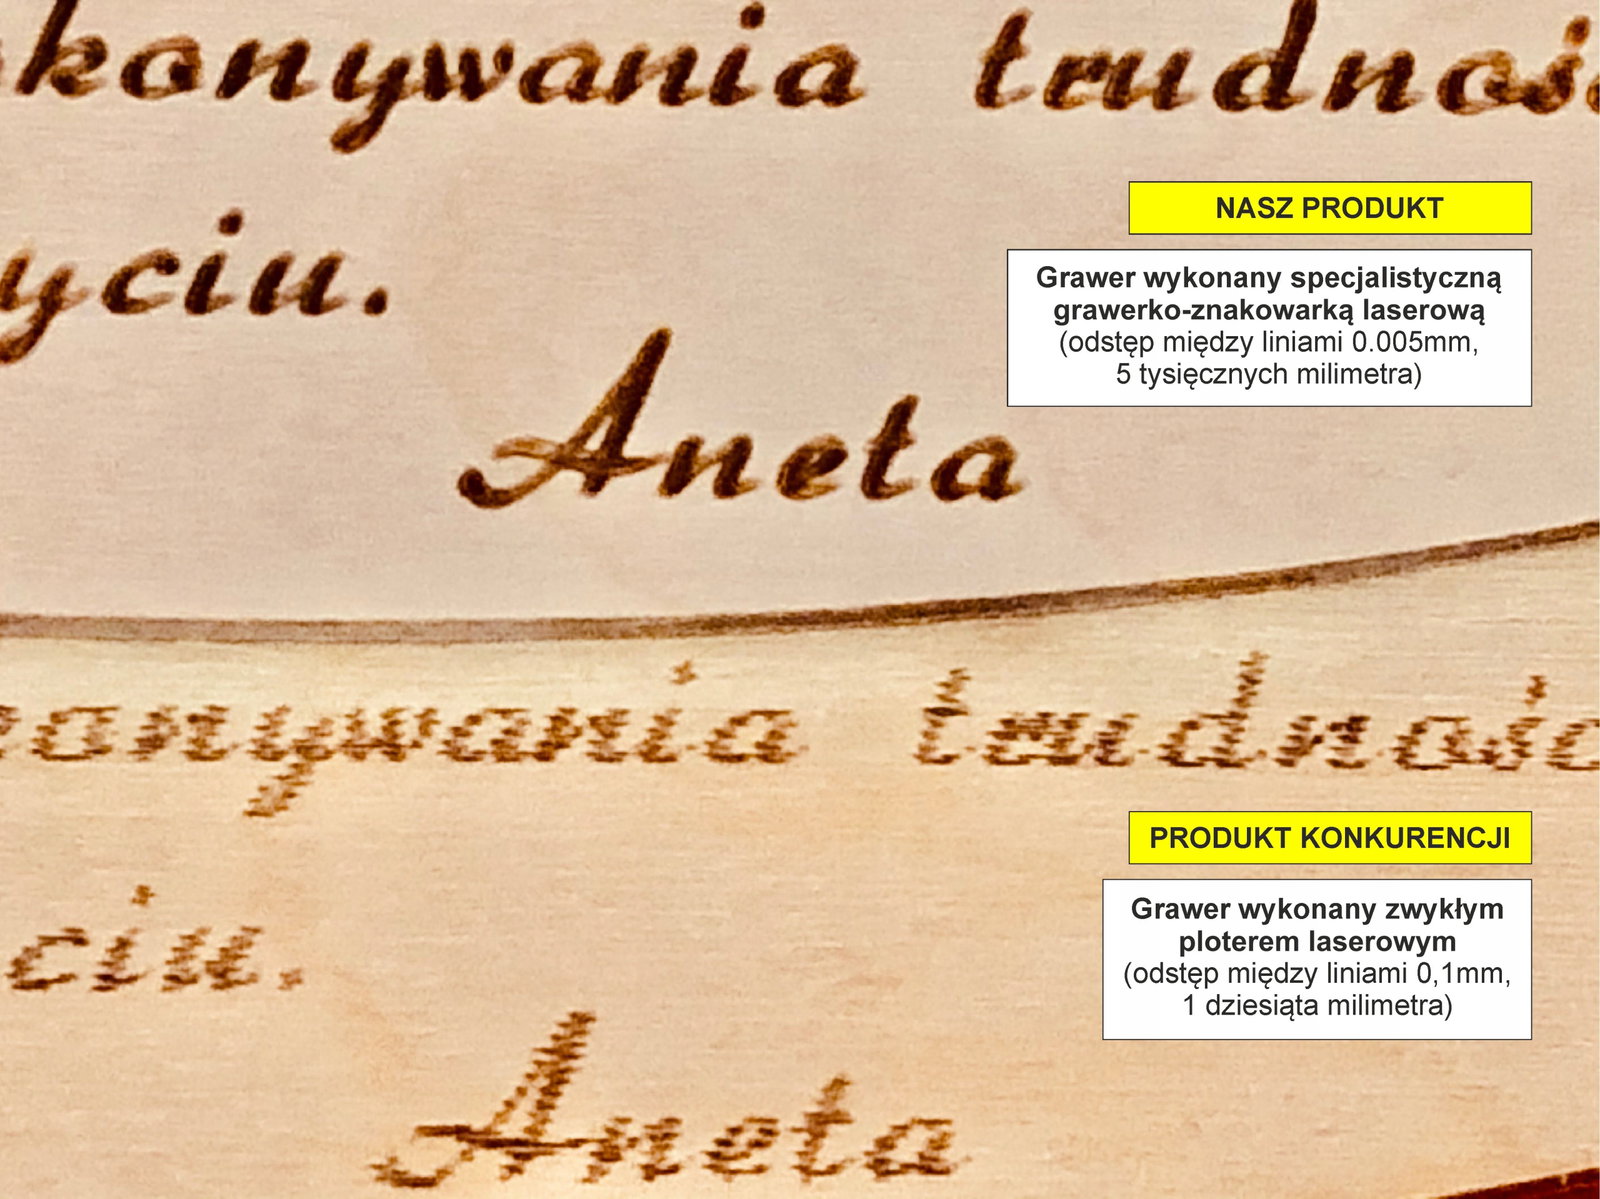 konywania trudnośc
yciu.
Aneta
NASZ PRODUKT
Grawer wykonany specjalistyczną
grawerko-znakowarką laserową
(odstęp między liniami 0.005mm,
5 tysięcznych milimetra)
onywania trudnośc
ciu.
Aneta
PRODUKT KONKURENCJI
Grawer wykonany zwykłym
ploterem laserowym
(odstęp między liniami 0,1mm,
1 dziesiąta milimetra)